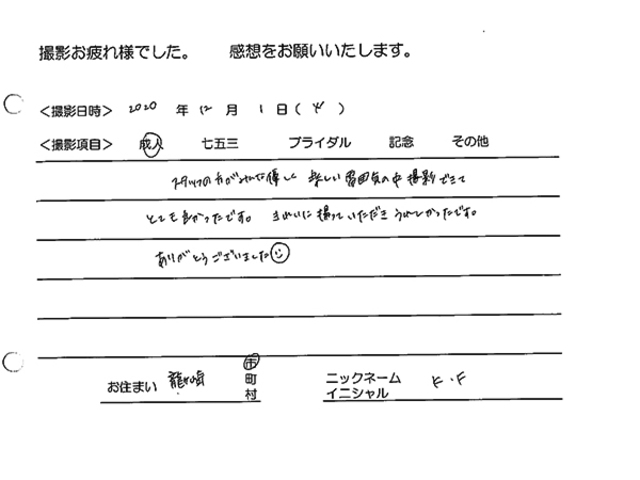 撮影お疲れ様でした。 感想をお願いいたします。
＜撮影日時＞ 2020 年 12 月 1 日 ( 火 )
＜撮影項目＞ 成人 七五三 ブライダル 記念 その他
スタッフの方がみな優しく 楽しい雰囲気の中 撮影できて
とても良かったです。 きれいに撮っていただき うれしかったです。
ありがとうございました☺
お住まい 龍ヶ崎 市 町 村
ニックネーム イニシャル F.F